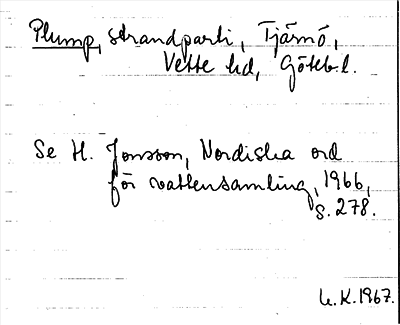 Plump, strandparti, Tjärnö,
Vette hd, Götebl.
Se H. Jonsson, Nordiska ord
för vattensamling, 1966,
s. 278.
U.K. 1967.